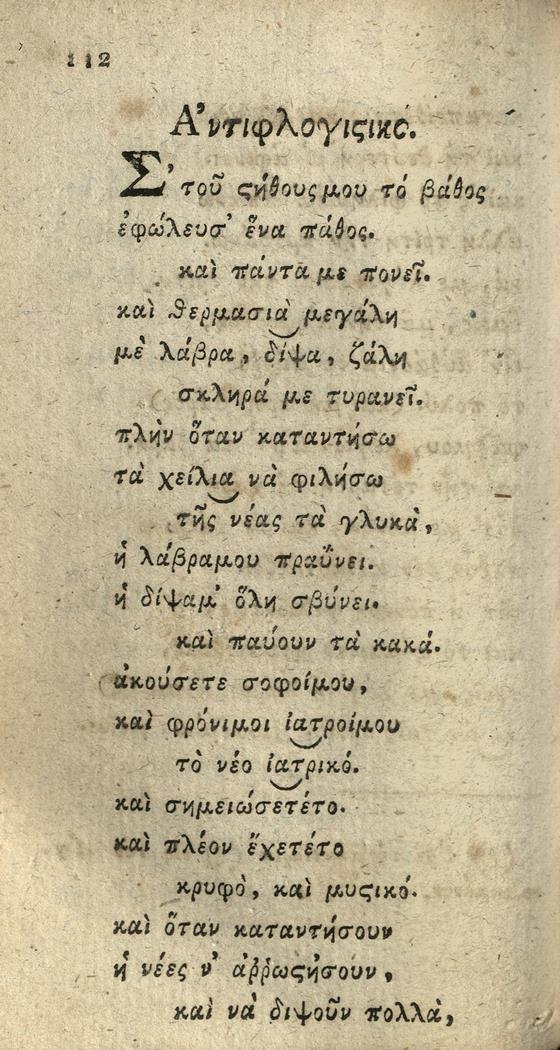 112
Ἀντιφλογιϛικό.
Σ’ τοῦ ϛήθουςμου τό βάθος
ἐφώλευσ’ ἕνα πάθος.
καὶ πάντα με πονεῖ.
καὶ θερμασιὰ μεγάλη
μὲ λάβρα, δίψα, ζάλη
σκληρά με τυρανεῖ.
πλὴν ὅταν καταντήσω
τὰ χείλια νὰ φιλήσω
τῆς νέας τὰ γλυκὰ,
ἡ λάβραμου πραΰνει.
ἡ δίψαμ’ ὅλη σβύνει.
καὶ παύουν τὰ κακά.
ἀκούσετε σοφοίμου,
καὶ φρόνιμοι ἰατροίμου
τὸ νέο ἰατρικό.
καὶ σημειώσετέτο.
καὶ πλέον ἔχετέτο
κρυφὸ, καὶ μυϛικό.
καὶ ὅταν καταντήσουν
ἡ νέες ν’ ἀῤῥωϛήσουν,
καὶ νὰ διψοῦν πολλὰ,